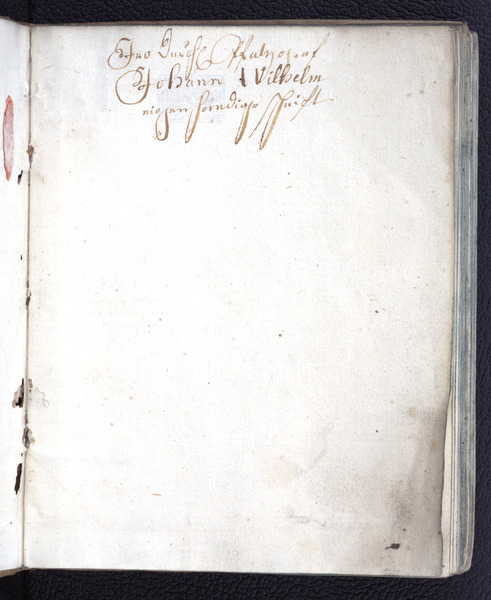 Iro Durchl Pfaltzgraf
Johann Wilhelm
eigen händige schrift